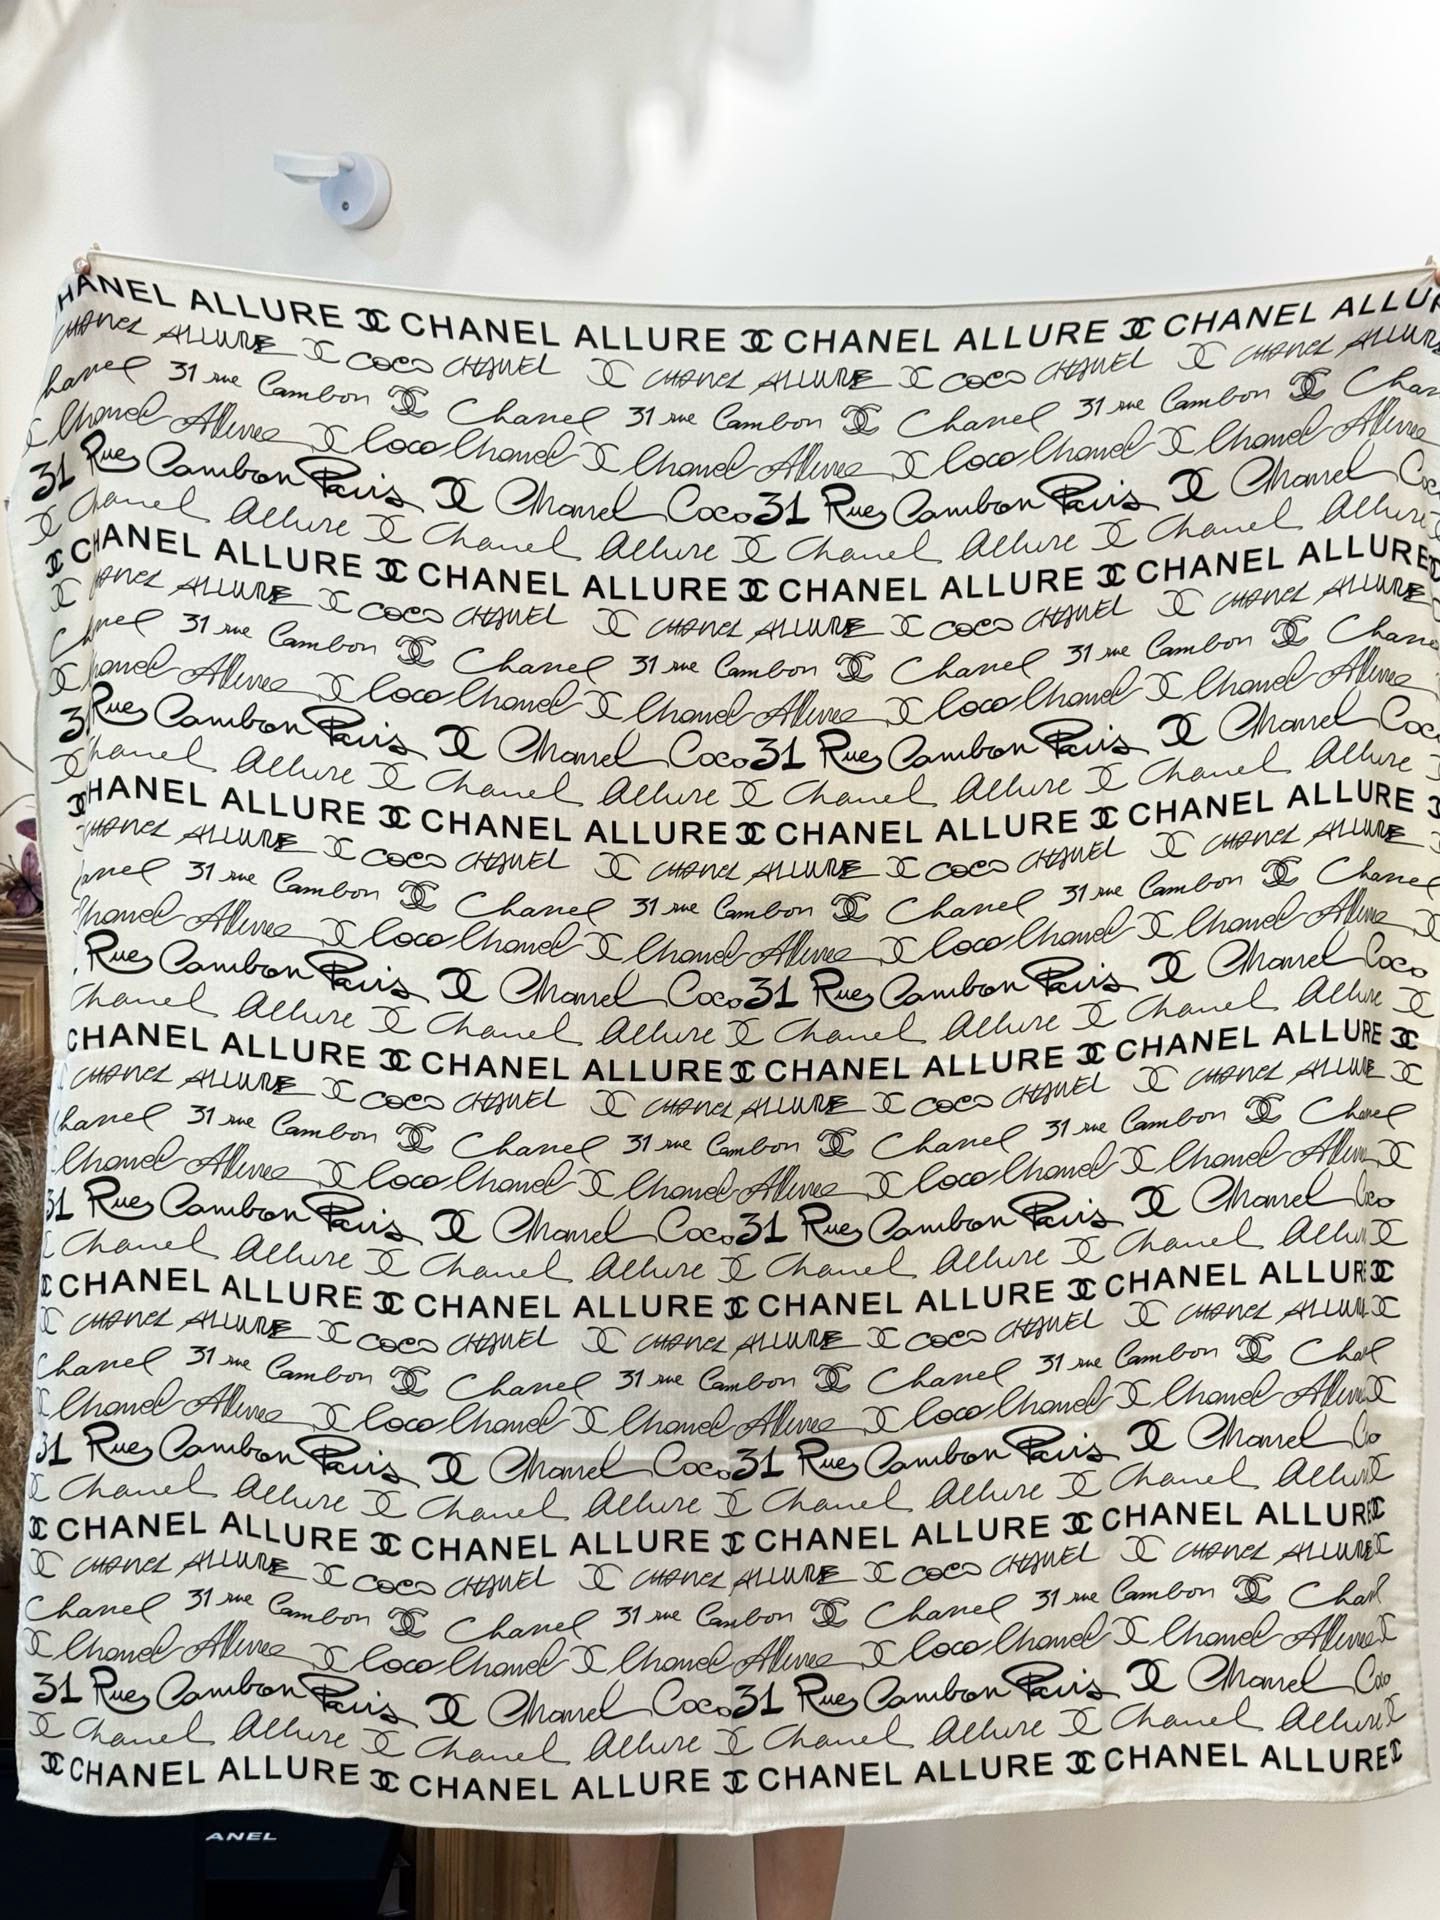 HANEL ALLURE CHANEL ALLURE CHANEL ALLURE CHANEL ALLUR
CHANEL ALLURE COCO CHANEL CHANEL ALLURE COCO CHANEL CHANEL ALLURE
hanel 31 rue Cambon Chanel 31 rue Cambon Chanel 31 rue Cambon Chan
Chanel Allure Coco Chanel Chanel Allure Coco Chanel Chanel Allure
31 Rue Cambon Paris Chanel Coco 31 Rue Cambon Paris Chanel Coco
Chanel Allure Chanel Allure Chanel Allure Chanel Allure
CHANEL ALLURE CHANEL ALLURE CHANEL ALLURE CHANEL ALLURE
CHANEL ALLURE COCO CHANEL CHANEL ALLURE COCO CHANEL CHANEL ALLURE
Chanel 31 rue Cambon Chanel 31 rue Cambon Chanel 31 rue Cambon Chane
hanel Allure Coco Chanel Chanel Allure Coco Chanel Chanel Allure
3 Rue Cambon Paris Chanel Coco 31 Rue Cambon Paris Chanel Coco
hanel Allure Chanel Allure Chanel Allure Chanel Allure
HANEL ALLURE CHANEL ALLURE CHANEL ALLURE CHANEL ALLURE
CHANEL ALLURE COCO CHANEL CHANEL ALLURE COCO CHANEL CHANEL ALLURE
hanel 31 rue Cambon Chanel 31 rue Cambon Chanel 31 rue Cambon Chanel
Chanel Allure Coco Chanel Chanel Allure Coco Chanel Chanel Allure
Rue Cambon Paris Chanel Coco 31 Rue Cambon Paris Chanel Coco
Chanel Allure Chanel Allure Chanel Allure Chanel Allure
CHANEL ALLURE CHANEL ALLURE CHANEL ALLURE CHANEL ALLURE
CHANEL ALLURE COCO CHANEL CHANEL ALLURE COCO CHANEL CHANEL ALLURE
Chanel 31 rue Cambon Chanel 31 rue Cambon Chanel 31 rue Cambon Chanel
Chanel Allure Coco Chanel Chanel Allure Coco Chanel Chanel Allure
31 Rue Cambon Paris Chanel Coco 31 Rue Cambon Paris Chanel Coco
Chanel Allure Chanel Allure Chanel Allure Chanel Allu
CHANEL ALLURE CHANEL ALLURE CHANEL ALLURE CHANEL ALLUR
CHANEL ALLURE COCO CHANEL CHANEL ALLURE COCO CHANEL CHANEL ALLU
Chanel 31 rue Cambon Chanel 31 rue Cambon Chanel 31 rue Cambon Chal
Chanel Allure Coco Chanel Chanel Allure Coco Chanel Chanel Allure
31 Rue Cambon Paris Chanel Coco 31 Rue Cambon Paris Chanel Co
Chanel Allure Chanel Allure Chanel Allure Chanel Allu
CHANEL ALLURE CHANEL ALLURE CHANEL ALLURE CHANEL ALLURE
CHANEL ALLURE COCO CHANEL CHANEL ALLURE COCO CHANEL CHANEL ALLURE
Chanel 31 rue Cambon Chanel 31 rue Cambon Chanel 31 rue Cambon Chanl
Chanel Allure Coco Chanel Chanel Allure Coco Chanel Chanel Allure
31 Rue Cambon Paris Chanel Coco 31 Rue Cambon Paris Chanel Coo
Chanel Allure Chanel Allure Chanel Allure Chanel Allure
CHANEL ALLURE CHANEL ALLURE CHANEL ALLURE CHANEL ALLURE
ANEL